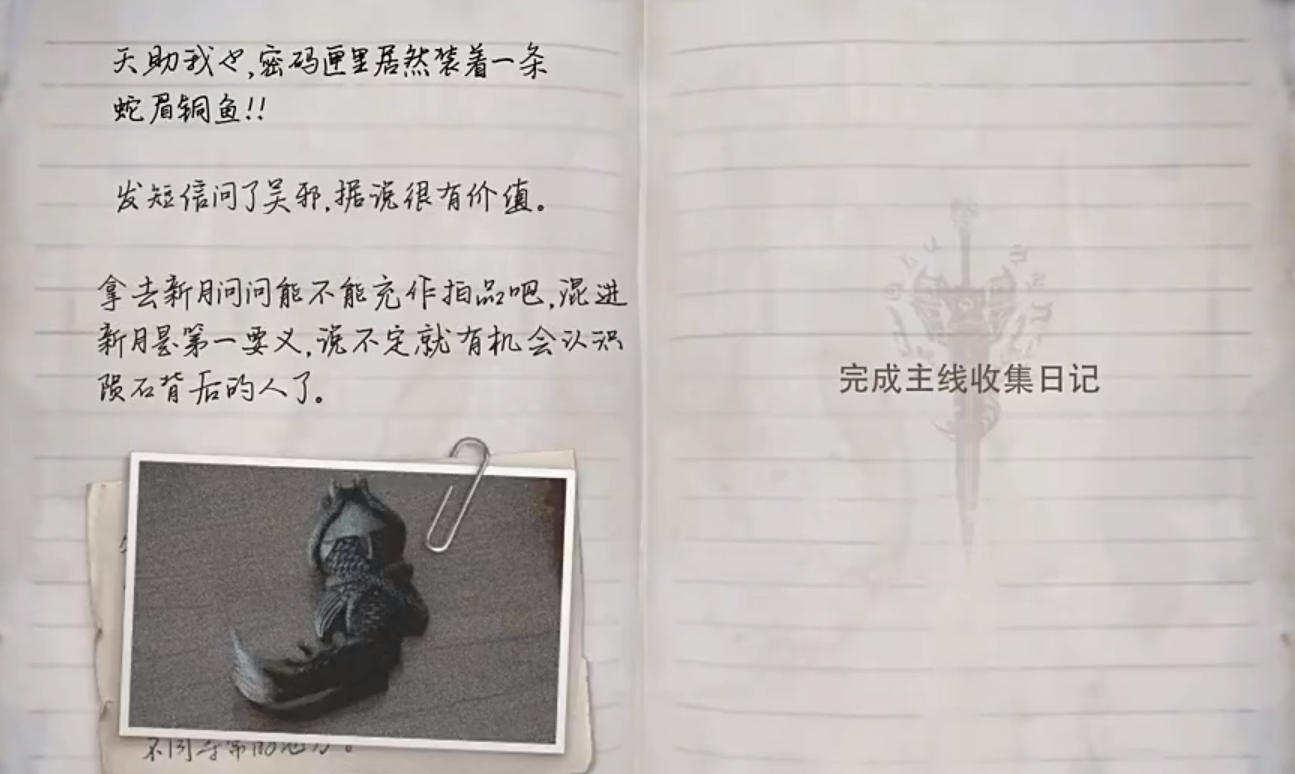 天助我也,密码匣里居然装着一条
蛇眉铜鱼!!
发短信问了吴邪,据说很有价值。
拿去新月问问能不能充作拍品吧,混进
新月是第一要义,说不定就有机会认识
陨石背后的人了。
完成主线收集日记